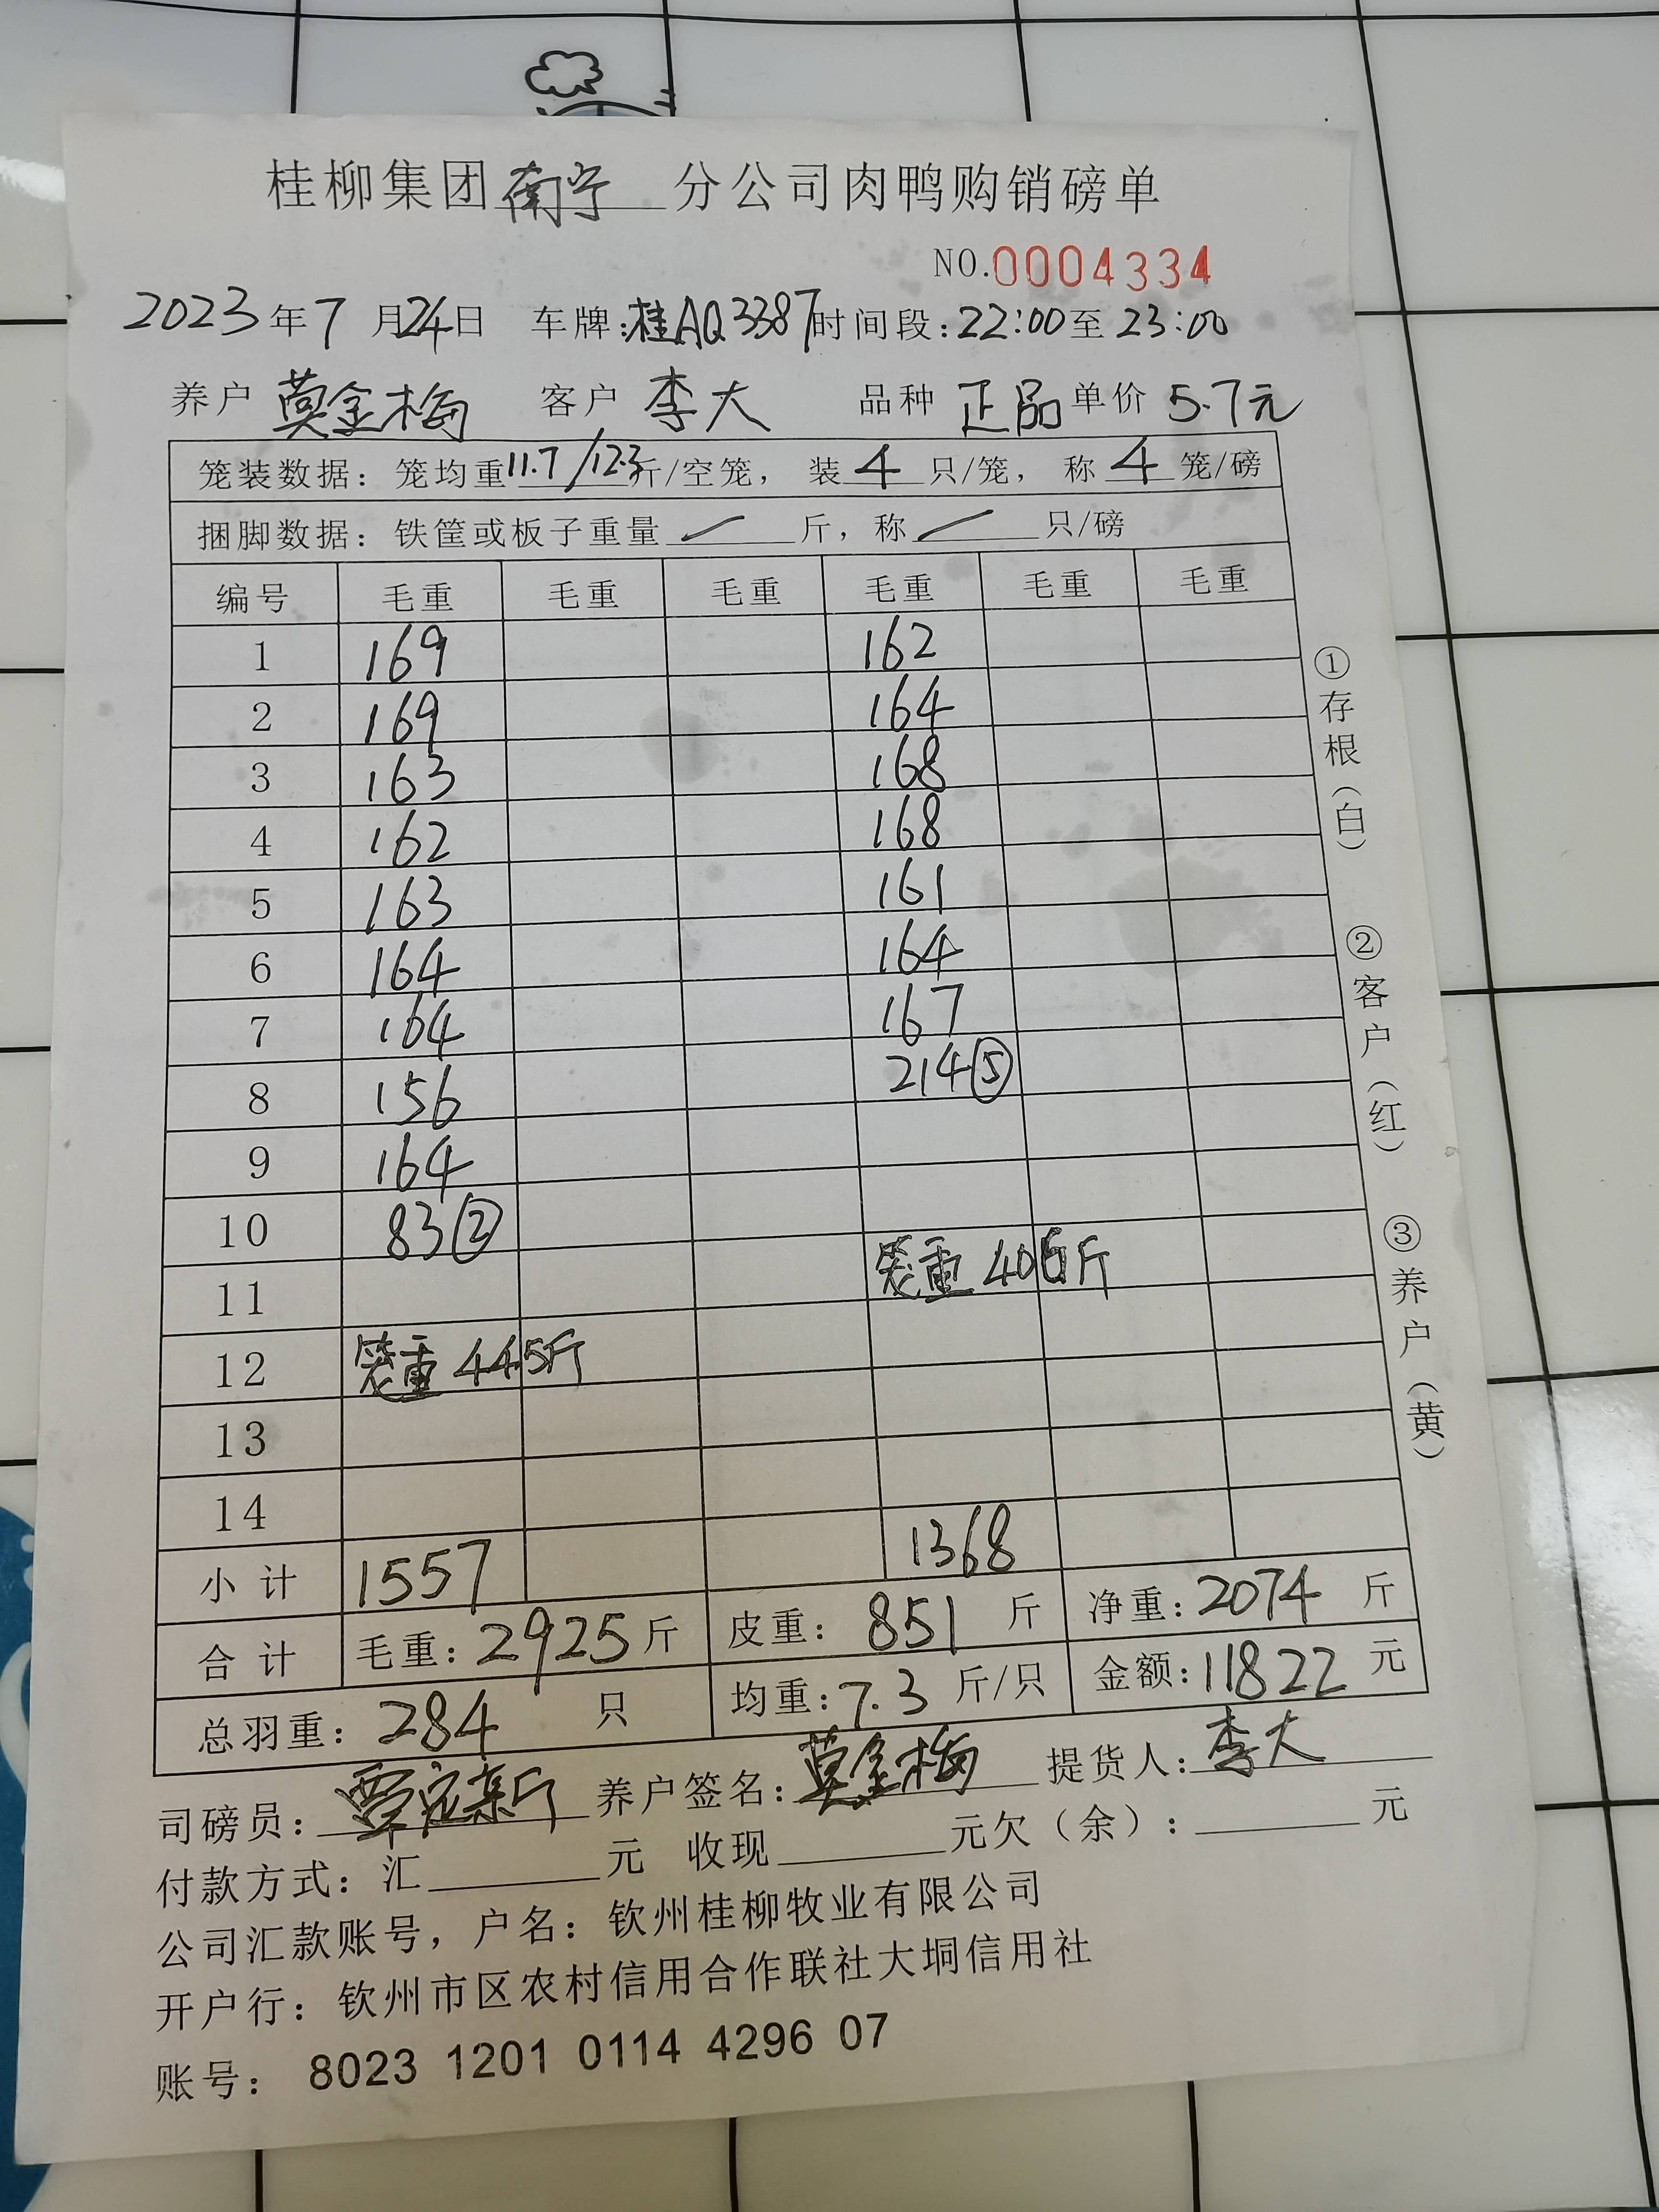 桂柳集团南宁分公司肉鸭购销磅单
NO.0004334
2023年7月24日 车牌:桂AQ3387时间段:22:00至23:00
养户 莫金梅 客户 李大 品种 正品 单价 5.7元
笼装数据: 笼均重11.7/12.3斤/空笼, 装4只/笼, 称4笼/磅
捆脚数据: 铁筐或板子重量 / 斤, 称 / 只/磅
编号 毛重 毛重 毛重 毛重 毛重 毛重
1 169 162
2 169 164
3 163 168
4 162 168
5 163 161
6 164 164
7 164 167
8 156 214⑤
9 164
10 83②
11 笼重 406斤
12 笼重 445斤
13
14
小计 1557 1368
合计 毛重: 2925斤 皮重: 851斤 净重: 2074斤
总羽重: 284只 均重: 7.3斤/只 金额: 11822元
司磅员: 覃定新 养户签名: 莫金梅 提货人: 李大
付款方式: 汇____元 收现____元欠(余): ____元
公司汇款账号, 户名: 钦州桂柳牧业有限公司
开户行: 钦州市区农村信用合作联社大垌信用社
账号: 8023 1201 0114 4296 07
①存根(白) ②客户(红) ③养户(黄)